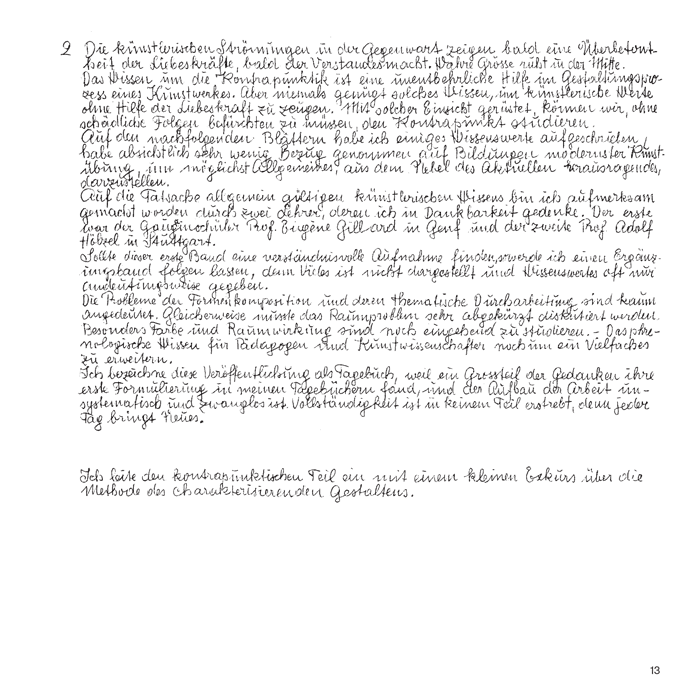 2 Die künstlerischen Strömungen in der Gegenwart zeigen bald eine Überbetont-
heit der Liebeskräfte, bald der Verstandesmacht. Wahre Grösse ruht in der Mitte.
Das Wissen um die Kontrapunktik ist eine unentbehrliche Hilfe im Gestaltungspro-
zess eines Kunstwerkes. Aber niemals genügt solches Wissen, um künstlerische Werte
ohne Hilfe der Liebeskraft zu zeugen. Mit solcher Einsicht gerüstet, können wir, ohne
schädliche Folgen befürchten zu müssen, den Kontrapunkt studieren.
Auf den nachfolgenden Blättern habe ich einiges Wissenswerte aufgeschrieben,
habe absichtlich sehr wenig Bezug genommen auf Bildungen modernster Kunst-
übung, um möglichst Allgemeines, aus dem Nebel des Aktuellen herausragendes,
darzustellen.
Auf die Tatsache allgemein gültigen künstlerischen Wissens bin ich aufmerksam
gemacht worden durch zwei Lehrer, deren ich in Dankbarkeit gedenke. Der erste
war der Gauginschüler Prof. Eugène Gilliard in Genf und der zweite Prof Adolf
Hölzel in Stuttgart.
Sollte dieser erste Band eine verständnisvolle Aufnahme finden, so werde ich einen Ergänz-
ungsband folgen lassen, denn Vieles ist nicht dargestellt und Wissenswertes oft nur
andeutungsweise gegeben.
Die Probleme der Formenkomposition und deren thematische Durcharbeitung sind kaum
angedeutet. Gleicherweise musste das Raumproblem sehr abgekürzt diskutiert werden.
Besonders Farbe und Raumwirkung sind noch eingehend zu studieren. – Das phre-
nologische Wissen für Pädagogen und Kunstwissenschafter noch um ein Vielfaches
zu erweitern.
Ich bezeichne diese Veröffentlichung als Tagebuch, weil ein Grossteil der Gedanken ihre
erste Formulierung in meinen Tagebüchern fand, und der Aufbau der Arbeit un-
systematisch und zwanglos ist. Vollständigkeit ist in keinem Teil erstrebt, denn jeder
Tag bringt Neues.
Ich leite den kontrapunktischen Teil ein mit einem kleinen Exkurs über die
Methode des charakterisierenden Gestaltens.
13